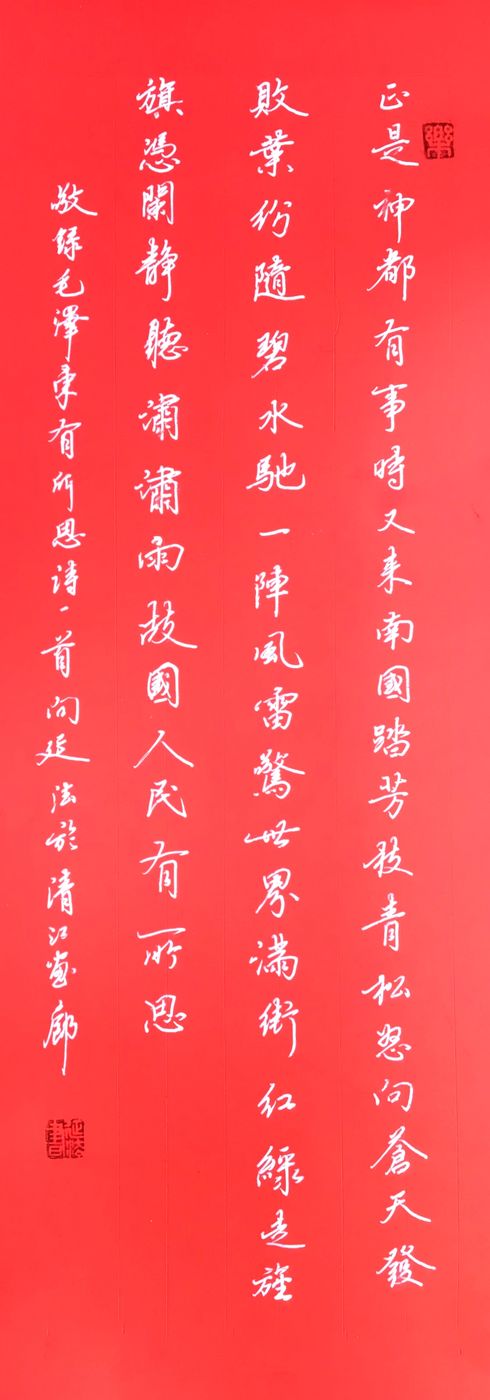 正是神都有事時又来南國踏芳枝青松怒向蒼天發
敗葉紛隨碧水馳一陣風雷驚世界滿街紅綠走旌
旗憑闌靜聽瀟瀟雨故國人民有所思
敬録毛澤東有所思詩一首向延法於清江畫廊